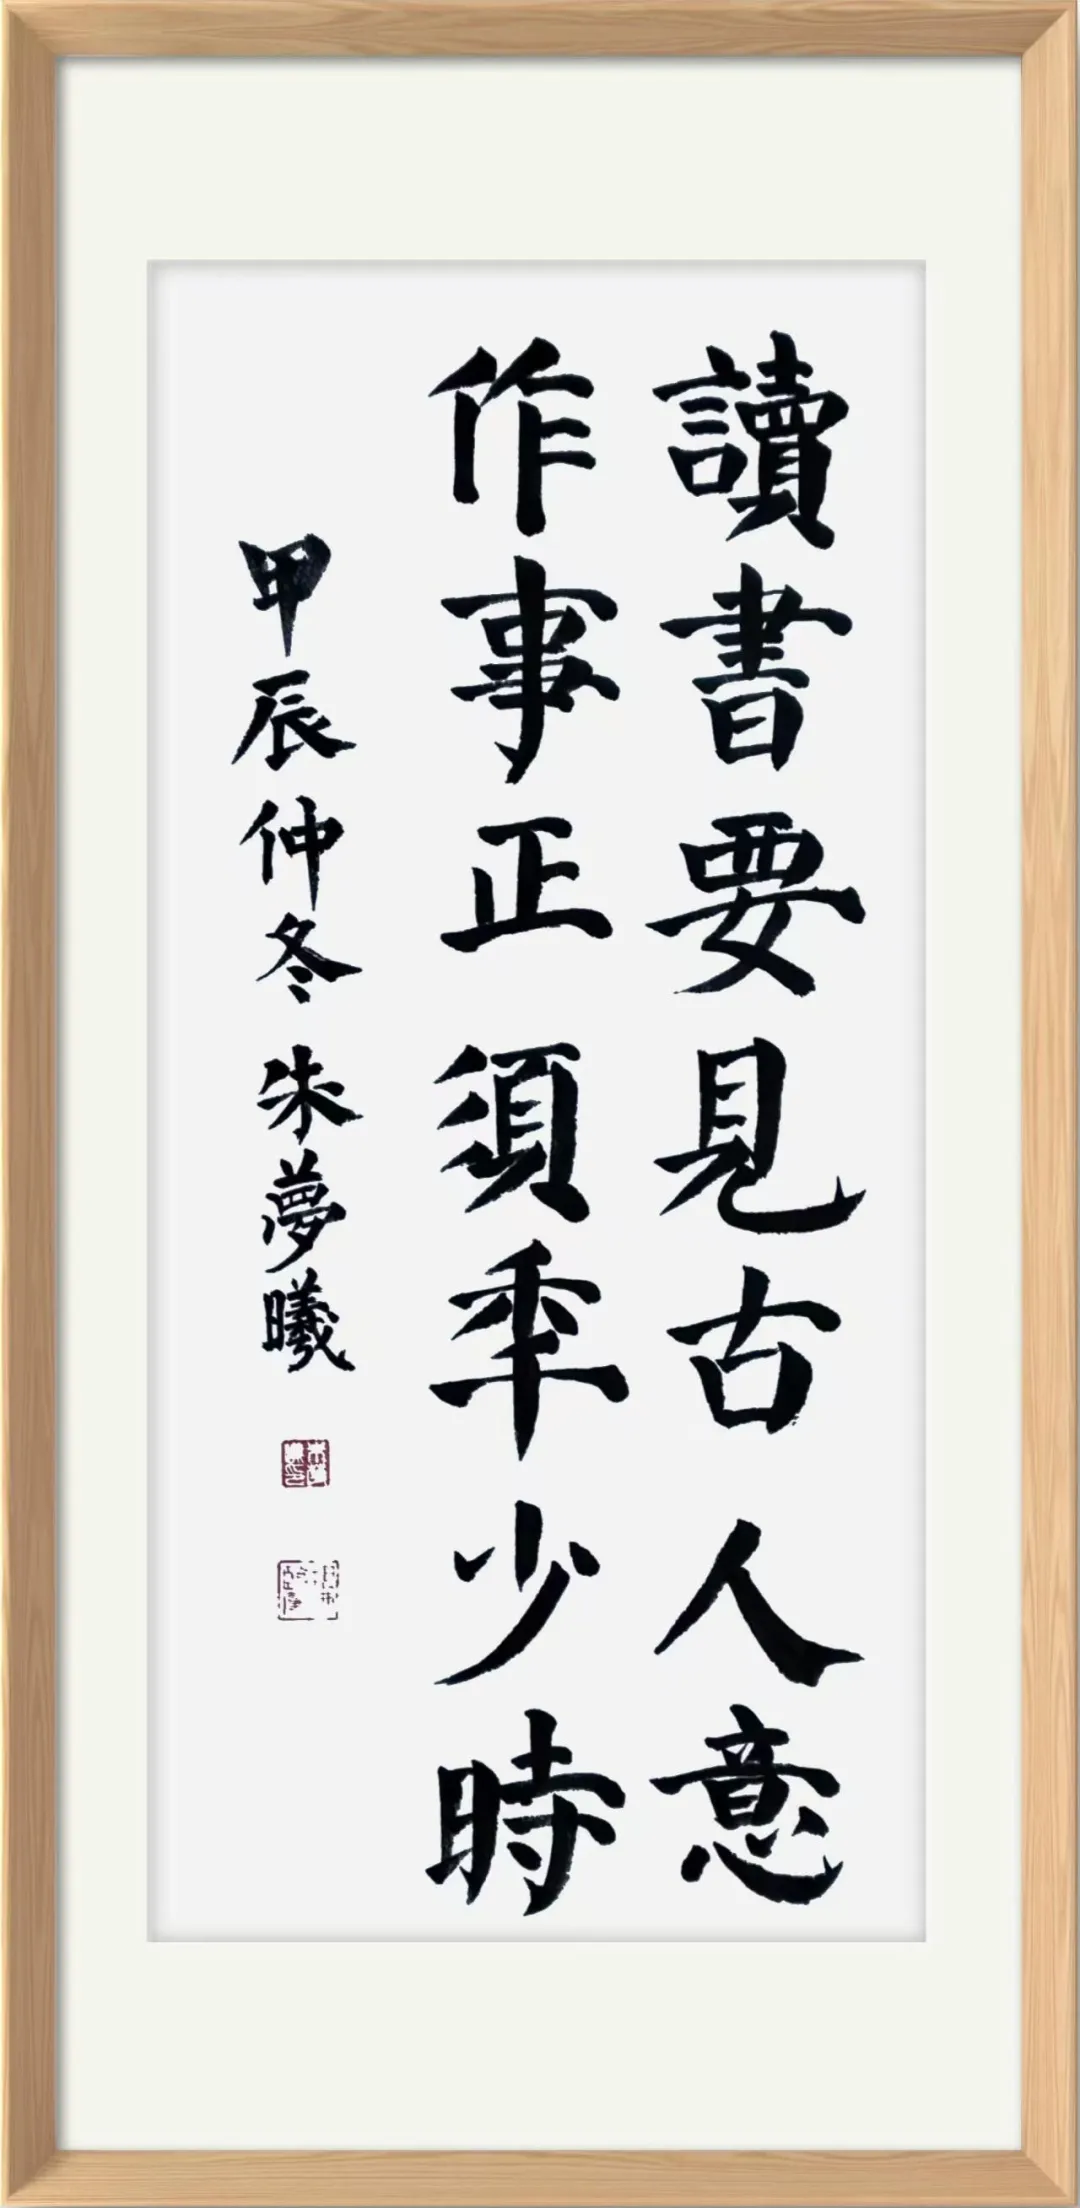 讀書要見古人意
作事正須年少時
甲辰仲冬 朱夢曦